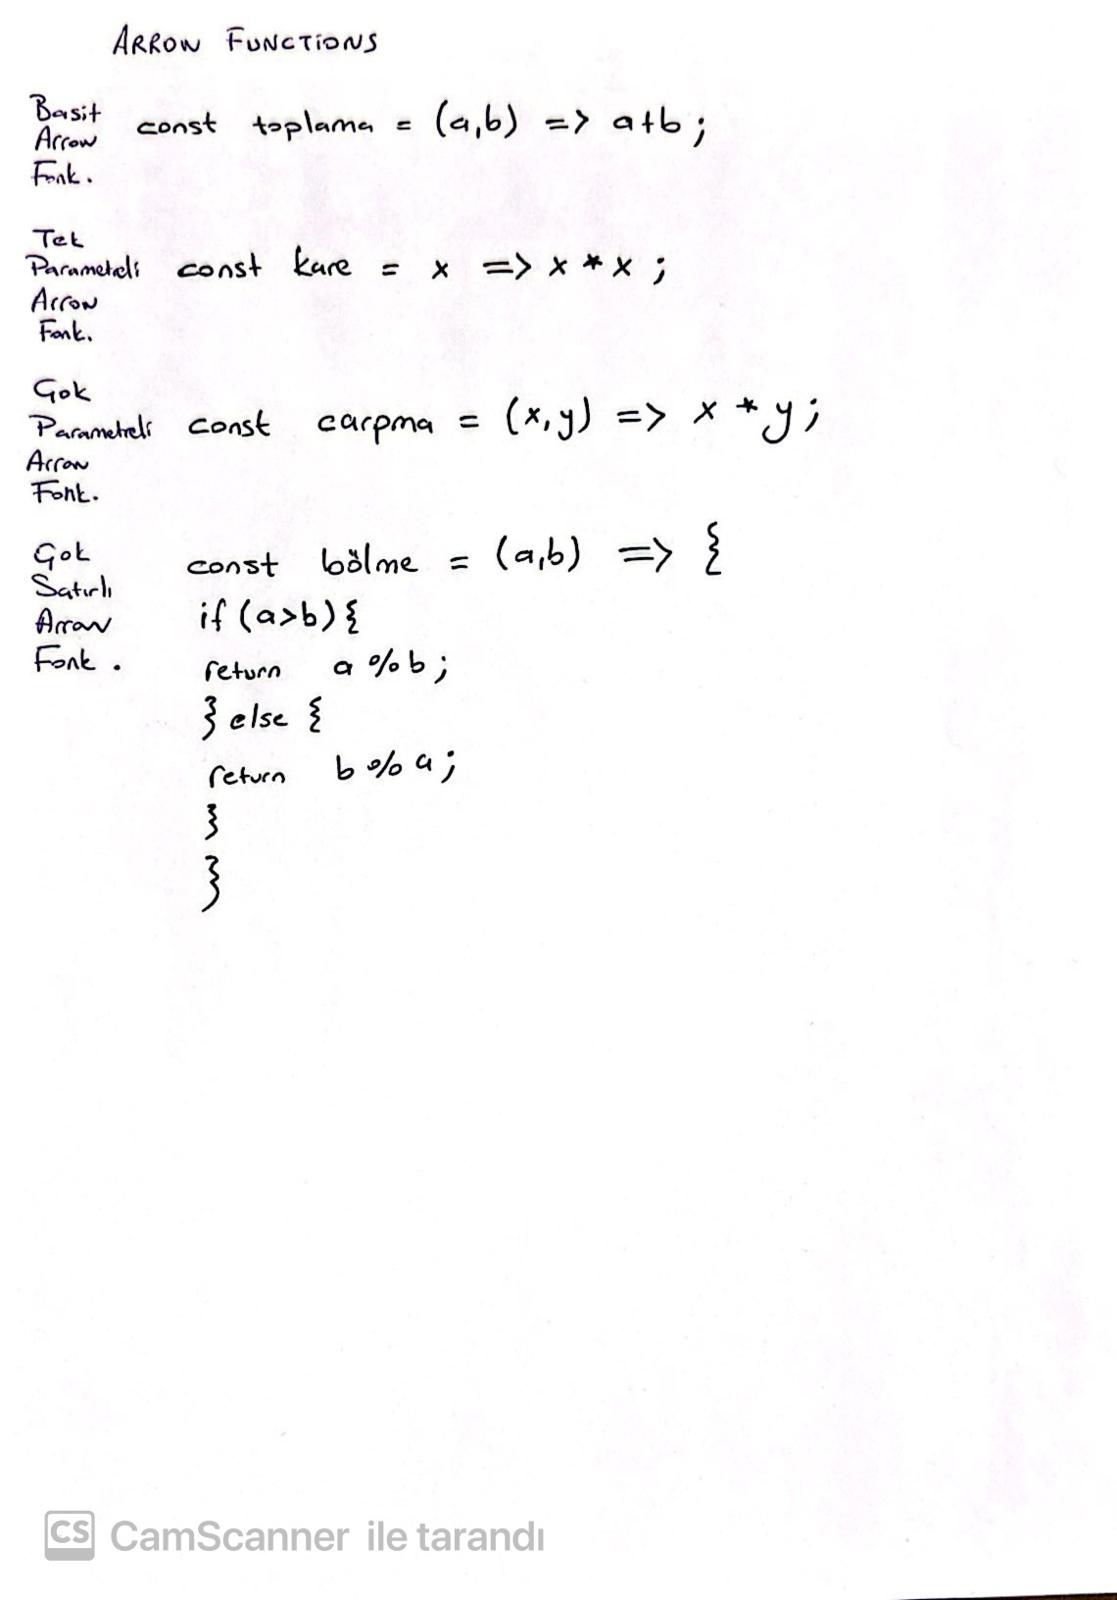 ARROW FUNCTIONS
Basit
Arrow
Fonk.
const toplama = (a,b) => a+b;
Tek
Parametreli
Arrow
Fonk.
const kare = x => x * x;
Çok
Parametreli
Arrow
Fonk.
const carpma = (x,y) => x * y;
Çok
Satırlı
Arrow
Fonk.
const bölme = (a,b) => {
if (a>b) {
return a % b;
} else {
return b % a;
}
}
CS CamScanner ile tarandı